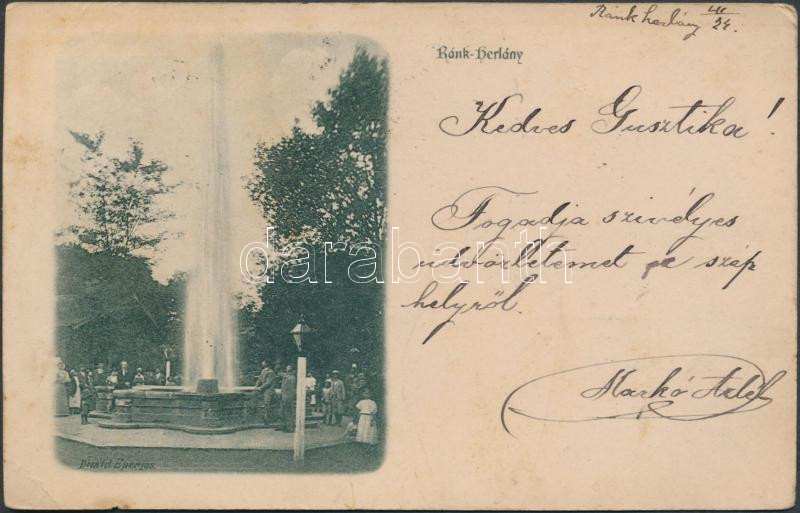 Ránk herlány VII
24.
Ránk-Herlány
Kedves Gusztika!
Fogadja szivélyes
üdvözletemet e szép
helyről.
Markó
Divald Eperjes.
darabanth